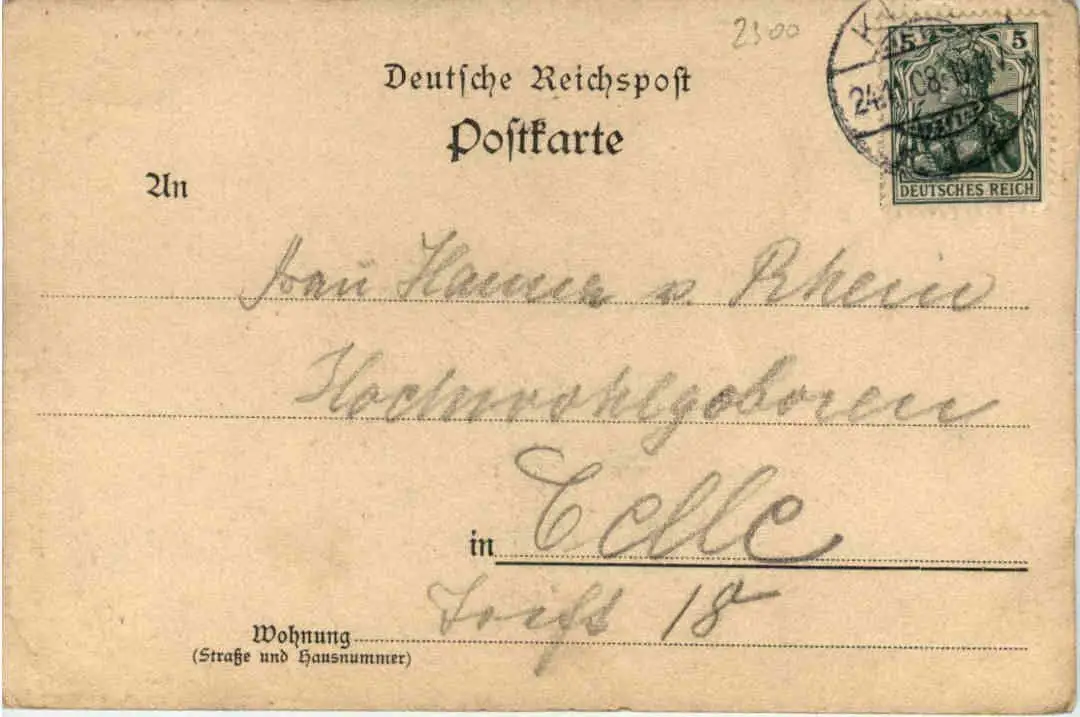 2900
Deutsche Reichspost
Postkarte
5 5
24.11.08
DEUTSCHES REICH
An
Frau Hanna v. Rhein
Hochwohlgeboren
in Celle
Trift 18
Wohnung
(Straße und Hausnummer)